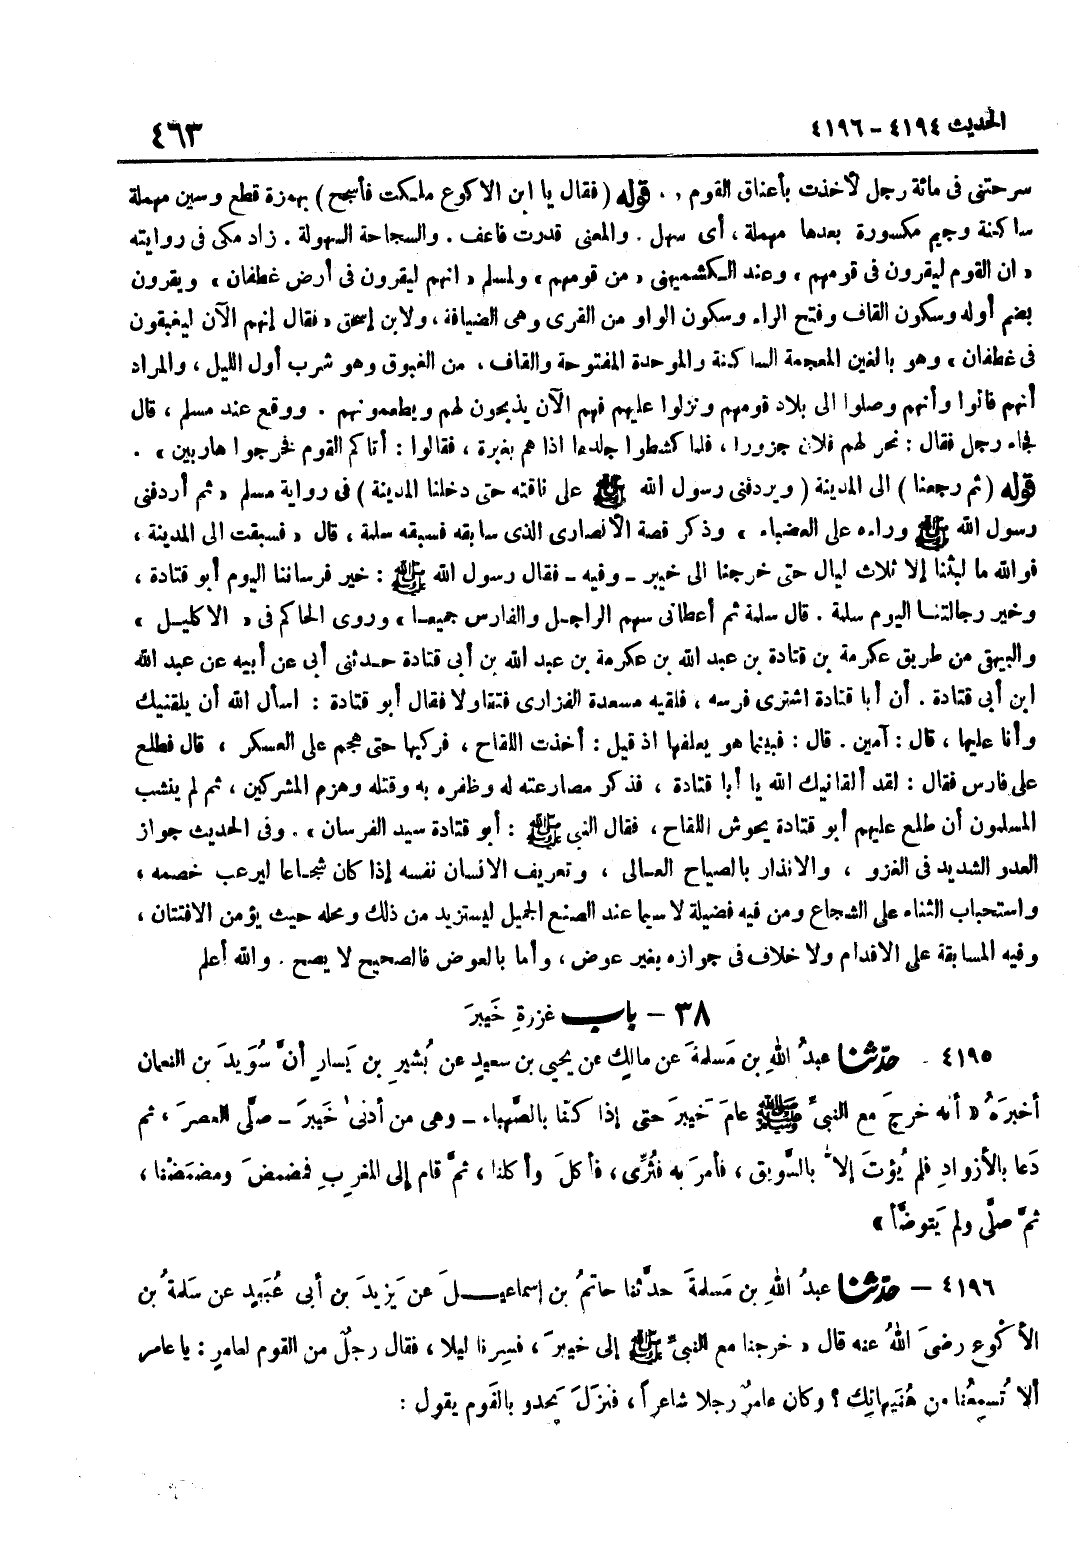 الحديث ٤١٩٤ - ٤١٩٦
٤٦٣
سرحتنى فى مائة رجل لأخذت بأعناق القوم ,, . قوله ( فقال يا ابن الاكوع ملكت فأسجح ) بهمزة قطع وسين مهملة
ساكنة وجيم مكسورة بعدها مهملة ، أى سهل . والمعنى قدرت فاعف . والسجاحة السهولة . زاد مكى فى روايته
« ان القوم ليقرون فى قومهم » وعند الكشميهنى « من قومهم » ولمسلم « انهم ليقرون فى أرض غطفان » ويقرون
بضم أوله وسكون القاف وفتح الراء وسكون الواو من القرى وهى الضيافة ، ولابن إسحق « فقال إنهم الآن ليغبقون
فى غطفان » وهو بالغين المعجمة الساكنة والموحدة المفتوحة والقاف ، من الغبوق وهو شرب أول الليل ، والمراد
أنهم فاتوا وأنهم وصلوا الى بلاد قومهم ونزلوا عليهم فهم الآن يذبحون لهم ويطعمونهم . ووقع عند مسلم ، قال
فجاء رجل فقال : نحر لهم فلان جزورا ، فلما كشطوا جلدها اذا هم بغبرة ، فقالوا : أتاكم القوم فخرجوا هاربين » .
قوله ( ثم رجعنا ) الى المدينة ( ويردفنى رسول الله ﷺ على ناقته حتى دخلنا المدينة ) فى رواية مسلم « ثم أردفنى
رسول الله ﷺ وراءه على العضباء » وذكر قصة الأنصارى الذى سابقه فسبقه سلمة ، قال « فسبقت الى المدينة ،
فوالله ما لبثنا إلا ثلاث ليال حتى خرجنا الى خيبر ـ وفيه ـ فقال رسول الله ﷺ : خير فرساننا اليوم أبو قتادة ،
وخير رجالتنا اليوم سلمة . قال سلمة ثم أعطانى سهم الراجل والفارس جميعا » وروى الحاكم فى « الاكليل »
والبيهقى من طريق عكرمة بن قتادة بن عبد الله بن عكرمة بن عبد الله بن أبى قتادة حدثنى أبى عن أبيه عن عبد الله
ابن أبى قتادة . أن أبا قتادة اشترى فرسه ، فلقيه مسعدة الفزارى فتقاولا فقال أبو قتادة : اسأل الله أن يلقنيك
وأنا عليها ، قال : آمين . قال : فبينما هو يعلفها اذ قيل : أخذت اللقاح ، فركبها حتى هجم على العسكر ، قال فطلع
على فارس فقال : لقد ألقانيك الله يا أبا قتادة ، فذكر مصارعته له وظفره به وقتله وهزم المشركين ، ثم لم ينشب
المسلمون أن طلع عليهم أبو قتادة يحوش اللقاح ، فقال النبى ﷺ : أبو قتادة سيد الفرسان » . وفى الحديث جواز
العدو الشديد فى الغزو ، والانذار بالصياح العالى ، وتعريف الانسان نفسه إذا كان شجاعا ليرعب خصمه ،
واستحباب الثناء على الشجاع ومن فيه فضيلة لا سيما عند الصنع الجميل ليستزيد من ذلك ومحله حيث يؤمن الافتتان ،
وفيه المسابقة على الاقدام ولا خلاف فى جوازه بغير عوض ، وأما بالعوض فالصحيح لا يصح . والله أعلم
٣٨ - باب غزوةِ خَيبرَ
٤١٩٥ - حدّثنا عبدُ اللهِ بن مَسلمةَ عن مالكٍ عن يحيى بن سعيدٍ عن بُشيرِ بن يَسارٍ أنَّ سُوَيدَ بن النعمان
أخبرَهُ « أنه خرجَ مع النبىِّ ﷺ عامَ خَيبرَ حتى إذا كنّا بالصَّهباء ـ وهى من أدنىٰ خَيبرَ ـ صلّى العصرَ ، ثم
دَعا بالأزوادِ فلم يُؤتَ إلاَّ بالسَّويق ، فأمرَ به فثُرِّى ، فأكلَ وأكلنا ، ثمَّ قام إلى المغربِ فمضمضَ ومضمَضْنا ،
ثمَّ صلَّى ولم يَتوضَّأ »
٤١٩٦ - حدّثنا عبدُ اللهِ بن مَسلمةَ حدَّثنا حاتمُ بن إسماعيلَ عن يَزيدَ بن أبى عُبَيدٍ عن سَلمةَ بن
الأكوعِ رضىَ اللهُ عنه قال « خرجنا مع النبىِّ ﷺ إلى خيبرَ ، فسِرنا ليلا ، فقال رجلٌ من القوم لعامرٍ : يا عامر
ألا تُسمِعُنا من هُنَيهاتِك ؟ وكان عامرٌ رجلا شاعراً ، فنزَلَ يَحدو بالقَوم يقول :